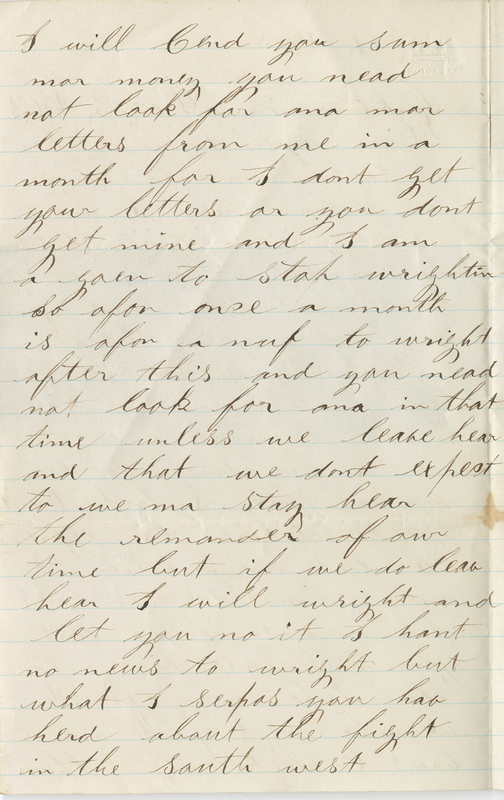 I will Cend you sum
mor money you nead
not look for ana mor
letters from me in a
month for I dont get
your letters or you dont
get mine and I am
a goen to stop wrightin
so ofon onse a month
is ofon a nuf to wright
after this and you nead
not look for ana in that
time unless we leave hear
and that we dont expest
to we ma stay hear
the remander of our
time but if we do leav
hear I will wright and
let you no it I hant
no news to wright but
what I serpos you hav
herd about the fight
in the south west